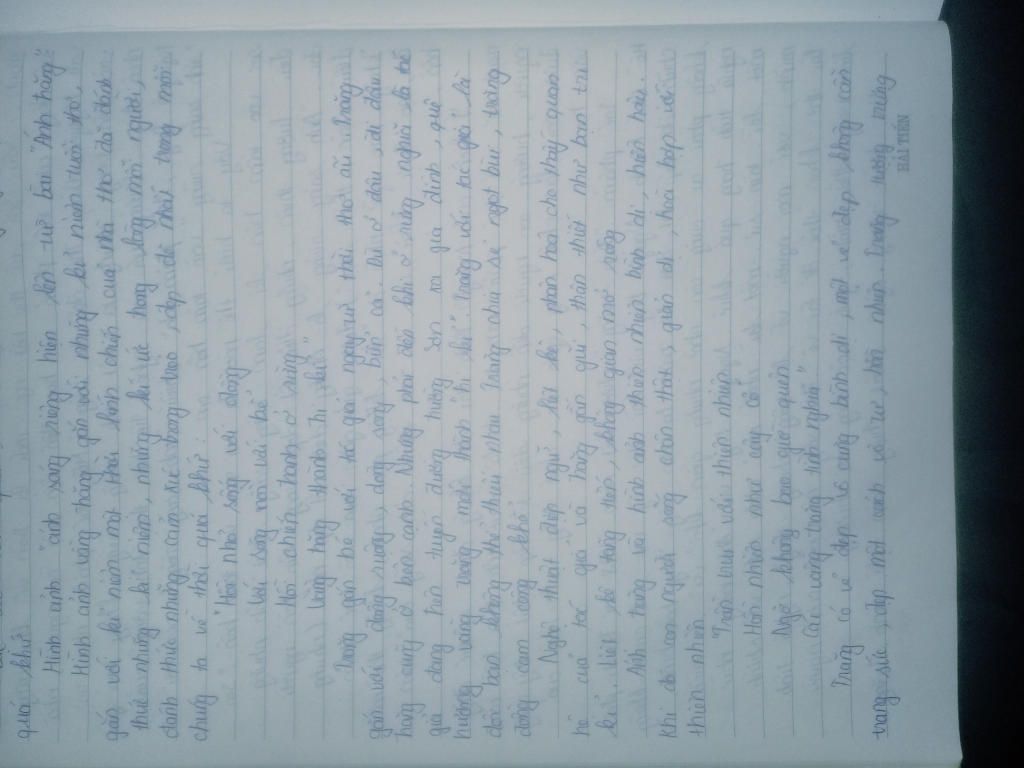 quá khứ.
Hình ảnh ánh sáng riêng hiện lên từ bài "Ánh trăng":
Hình ảnh vầng trăng gắn với những kỉ niệm tuổi thơ,
gắn với kỉ niệm một thời lính chiến của nhà thơ đã đánh
thức những kỉ niệm, những kí ức trong lòng mỗi người,
đánh thức những cảm xúc trong trẻo, đẹp đẽ nhất trong mỗi
chúng ta về thời quá khứ:
"Hồi nhỏ sống với đồng
Với sông rồi với bể
Hồi chiến tranh ở rừng
Vầng trăng thành tri kỉ"
Trăng gắn bó với tác giả ngay từ thời thơ ấu. Trăng
gắn với đồng ruộng, dòng sông, biển cả. Dù ở đâu, đi đâu
trăng cũng ở bên cạnh. Nhưng phải đến khi ở rừng nghĩa là
gia đình, quê
hương vầng trăng mới thành "tri kỉ". Trăng với tác giả là
đôi bạn không thể thiếu nhau. Trăng chia sẻ ngọt bùi, trăng
đồng cam cộng khổ.
Nghệ thuật điệp ngữ, liệt kê, nhân hoá cho thấy quan
hệ của tác giả và trăng gần gũi, thân thiết như bạn tri
kỉ. Liệt kê tăng tiến, không gian mở rộng.
Ánh trăng và hình ảnh thiên nhiên bình dị, hiền hậu.
Khi đó con người sống chân thật, giản dị, hoà hợp với
thiên nhiên
"Trần trụi với thiên nhiên
Hồn nhiên như cây cỏ
Ngỡ không bao giờ quên
Cái vầng trăng tình nghĩa"
Trăng có vẻ đẹp vô cùng bình dị, một vẻ đẹp không cần
trang sức, đẹp một cách vô tư, hồn nhiên. Trăng tượng trưng
HẢI TIẾN